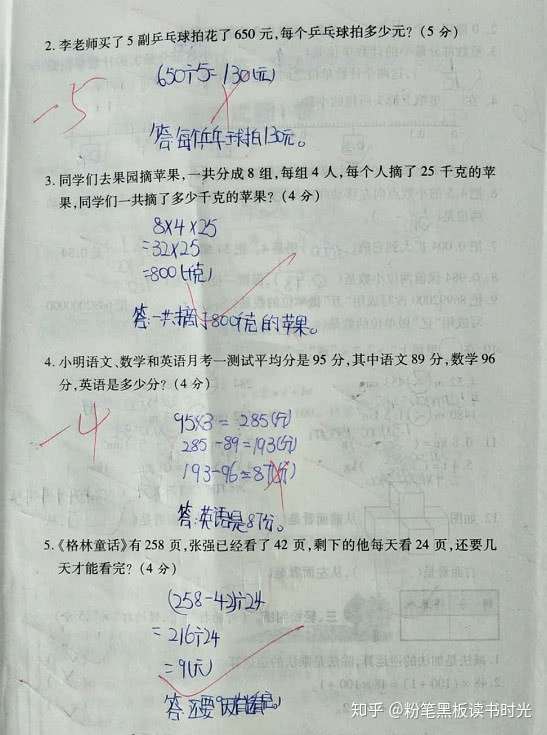 2. 李老师买了5副乒乓球拍花了650元,每个乒乓球拍多少元?(5分)
650÷5=130(元)
-5
答:每个乒乓球拍130元。
3. 同学们去果园摘苹果,一共分成8组,每组4人,每个人摘了25千克的苹
果,同学们一共摘了多少千克的苹果?(4分)
8×4×25
=32×25
=800(千克)
答:一共摘了800千克的苹果。
4. 小明语文、数学和英语月考一测试平均分是95分,其中语文89分,数学96
分,英语是多少分?(4分)
-4
95×3=285(分)
285-89=193(分)
193-96=87(分)
答:英语是87分。
5.《格林童话》有258页,张强已经看了42页,剩下的他每天看24页,还要几
天才能看完?(4分)
(258-42)÷24
=216÷24
=9(天)
答:还要9天才能看完。
知乎 @粉笔黑板读书时光